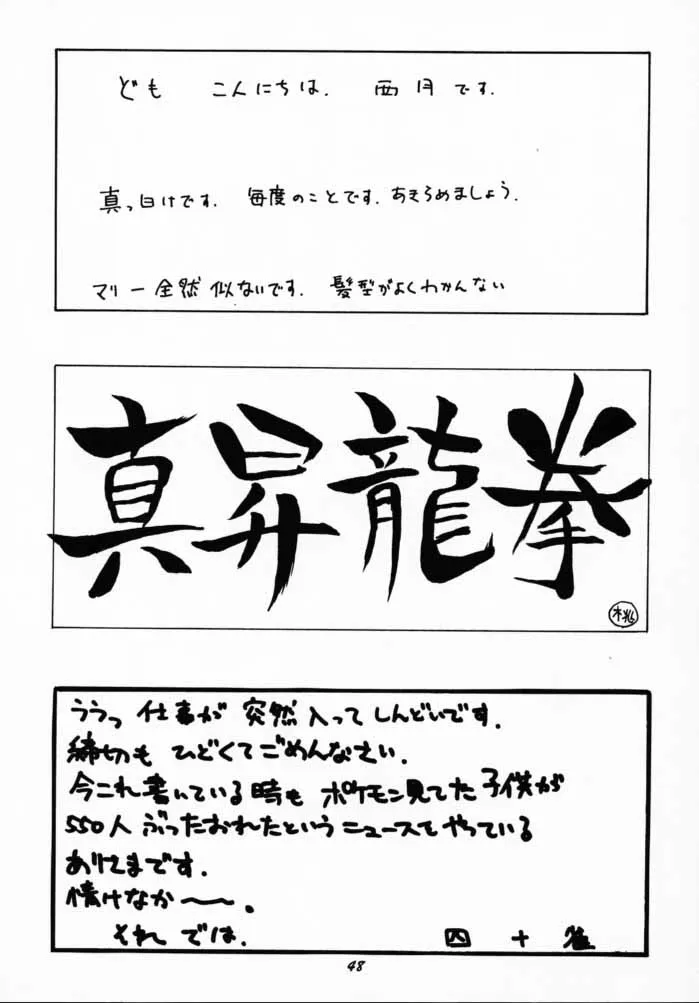 ども こんにちは. 西月です.
真っ白けです. 毎度のことです. あきらめましょう.
マリー全然似ないです. 髪型がよくわかんない
真昇龍拳
桃
ううっ 仕事が 突然入ってしんどいです.
締切も ひどくてごめんなさい.
今これ書いている時も ポケモン見てた子供が
550人 ぶったおれたというニュースをやっている
ありさまです.
情けなか〜〜.
それでは. 四十雀
48